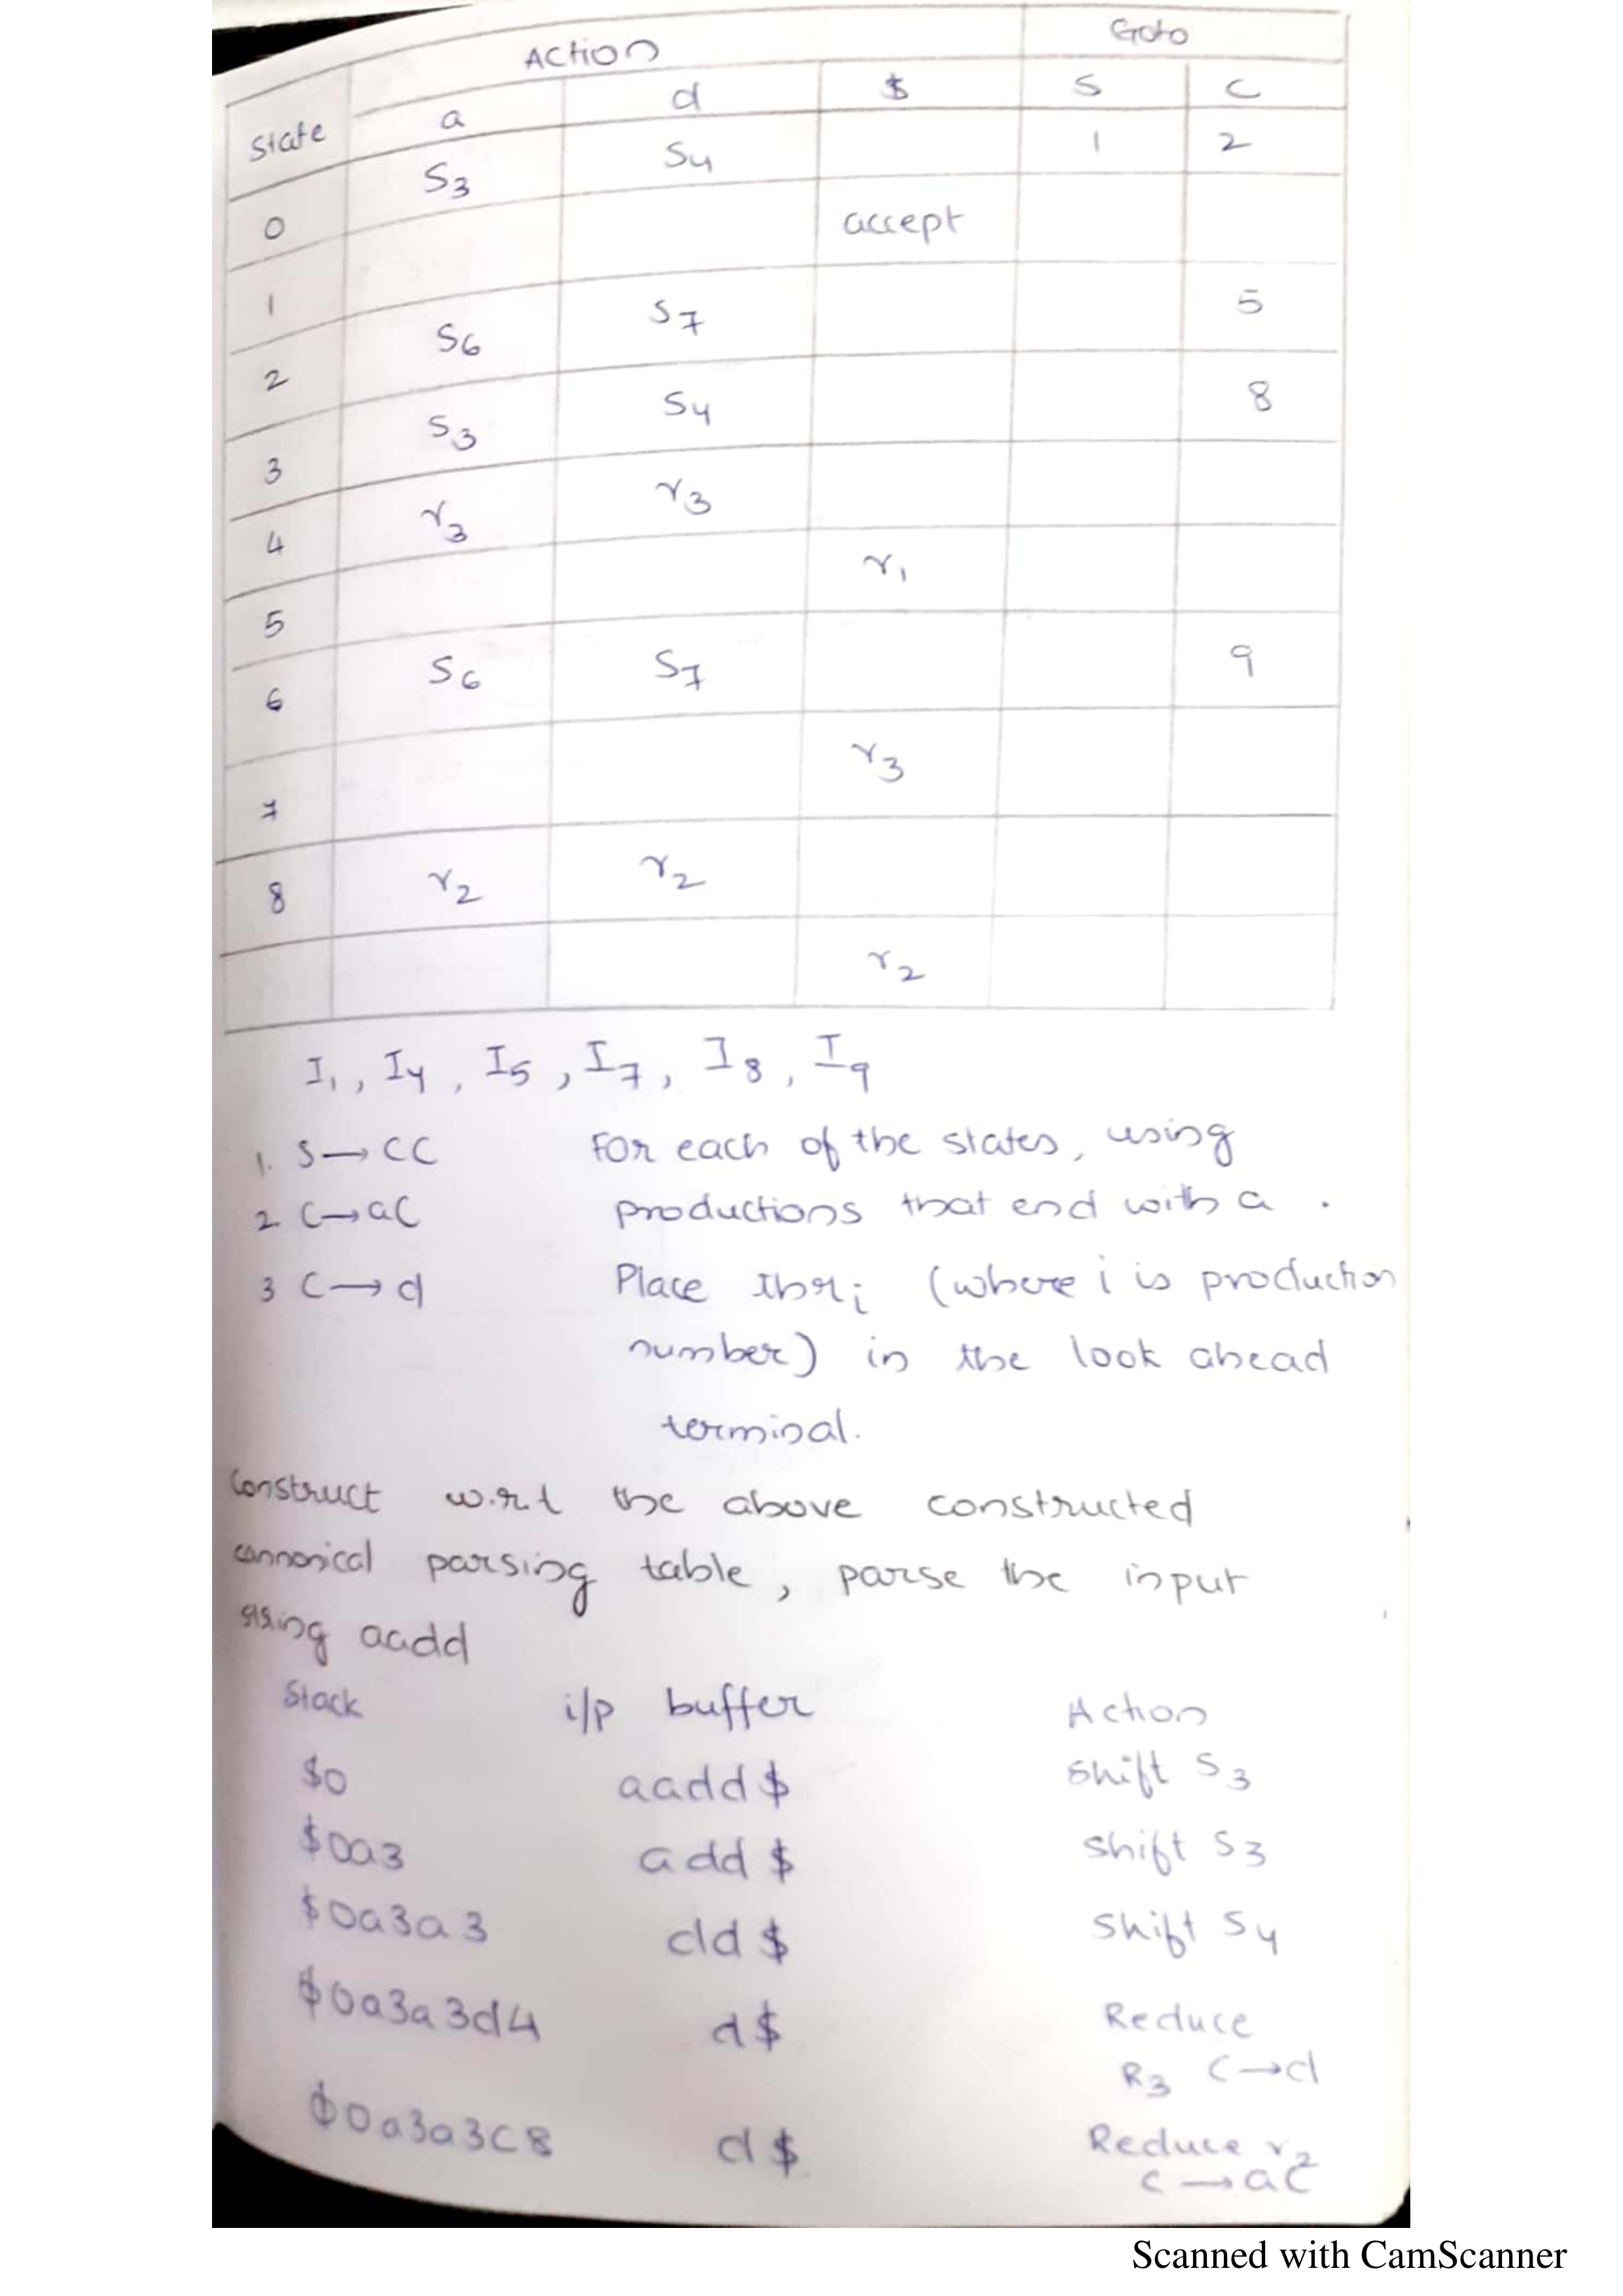 Action Goto
State a d $ S C
0 S3 S4 1 2
1 accept
2 S6 S7 5
3 S3 S4 8
4 r3 r3
5 r1
6 S6 S7 9
7 r3
8 r2 r2
r2
I1, I4, I5, I7, I8, I9
1. S→CC For each of the states, using
2 C→aC productions that end with a .
3 C→d Place thr i (where i is production
number) in the look ahead
terminal.
Construct w.r.t the above constructed
cannonical parsing table, parse the input
string aadd
Stack i/p buffer Action
$0 aadd$ shift S3
$0a3 add$ shift S3
$0a3a3 dd$ shift S4
$0a3a3d4 d$ Reduce
R3 C→d
$0a3a3C8 d$ Reduce r2
C→aC
Scanned with CamScanner